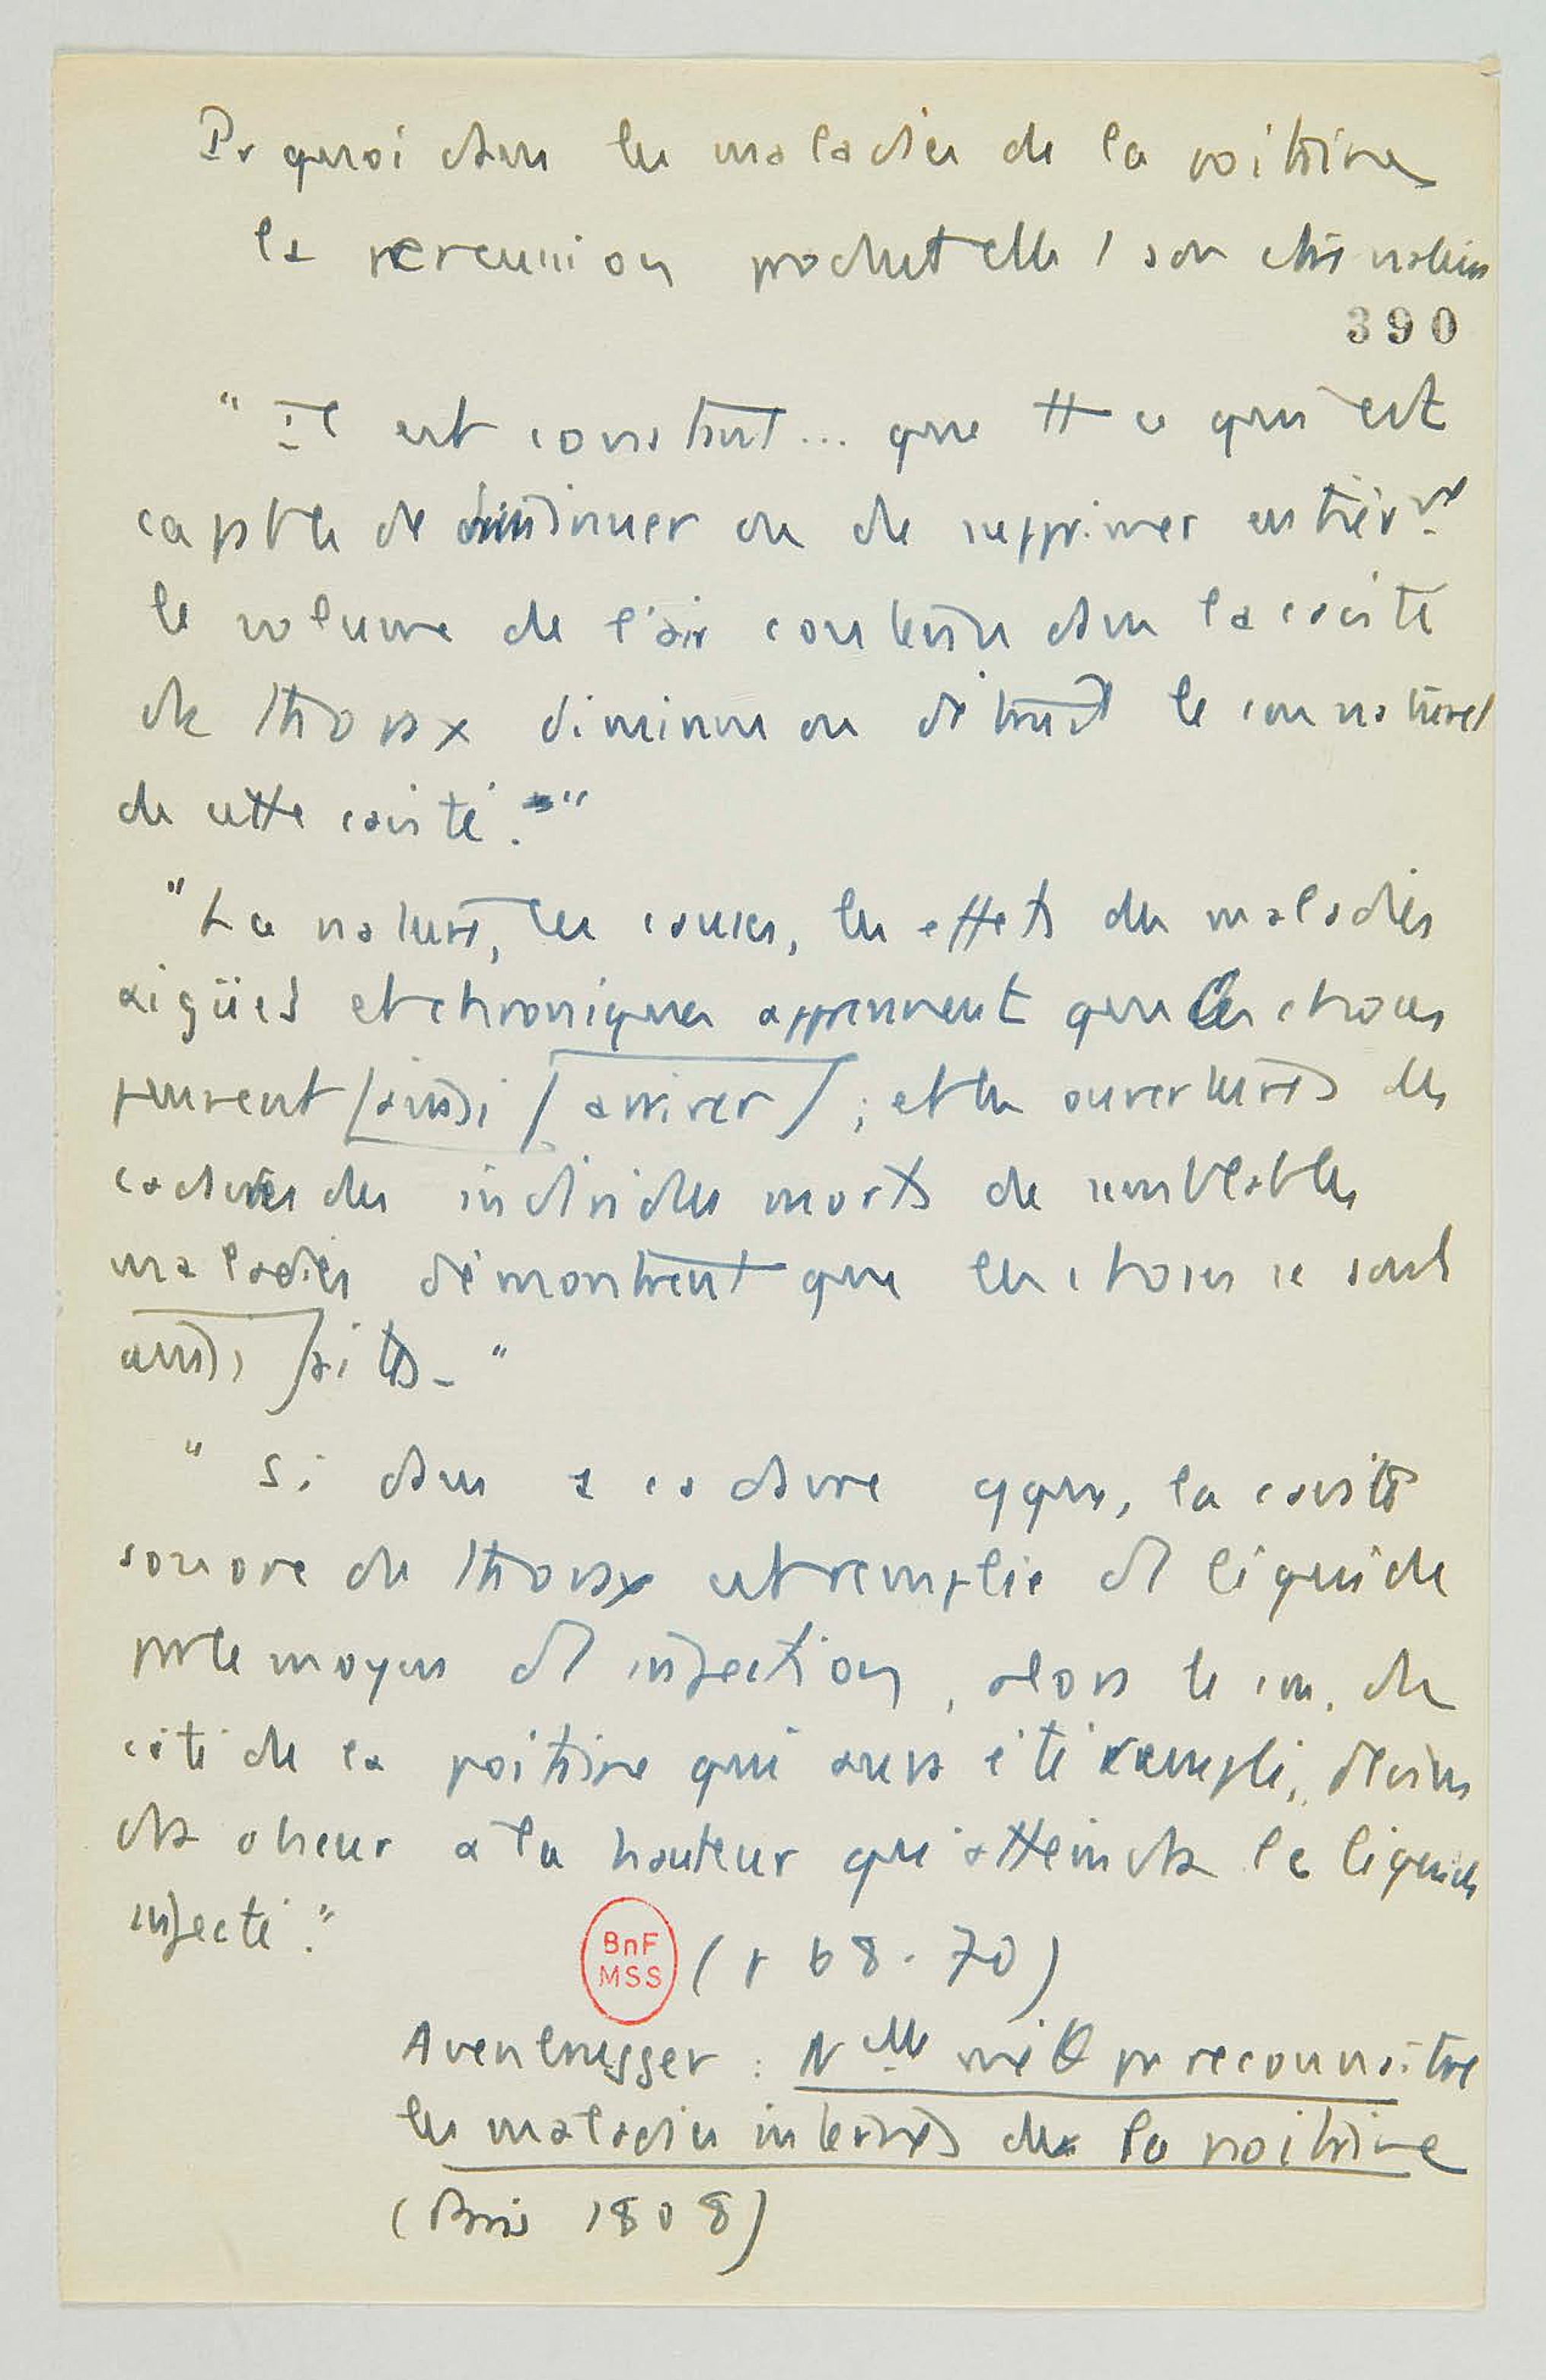 Pr quoi dans les maladies de la poitrine
la percussion produit elle 1 son contre nature
390
"Il est constant... que tt ce qui est
capble de diminuer ou de supprimer entièrmt
le volume de l'air contenu dans la cavité
du thorax diminue ou détruit le son naturel
de cette cavité."
"La nature, les causes, les effets des maladies
aigües et chroniques apprennent que les choses
peuvent ainsi arriver ; et les ouvertures des
cadavres des individus morts de semblables
maladies démontrent que les choses se sont
ainsi faites."
"Si dans 1 cadavre qque, la cavité
sonore du thorax est remplie d1 liquide
pr le moyen d1 injection, alors le son du
côté de la poitrine qui aura été rempli, deviendra
obscur à la hauteur qu'atteindra le liquide
injecté."
BnF
MSS
(p 68-70)
Avenbrugger : Nlle mét pr reconnaitre
les maladies internes de la poitrine
(Paris 1808)